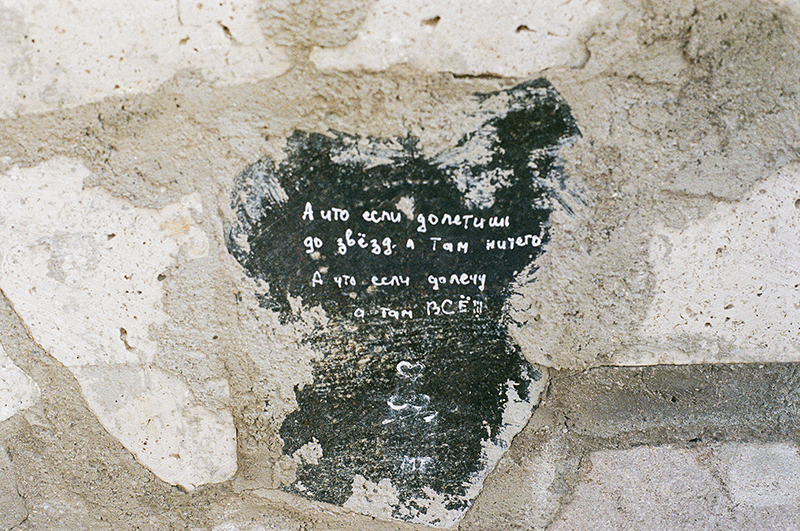 А что если долетишь
до звёзд, а там ничего
А что если долечу
а там ВСЁ!!!